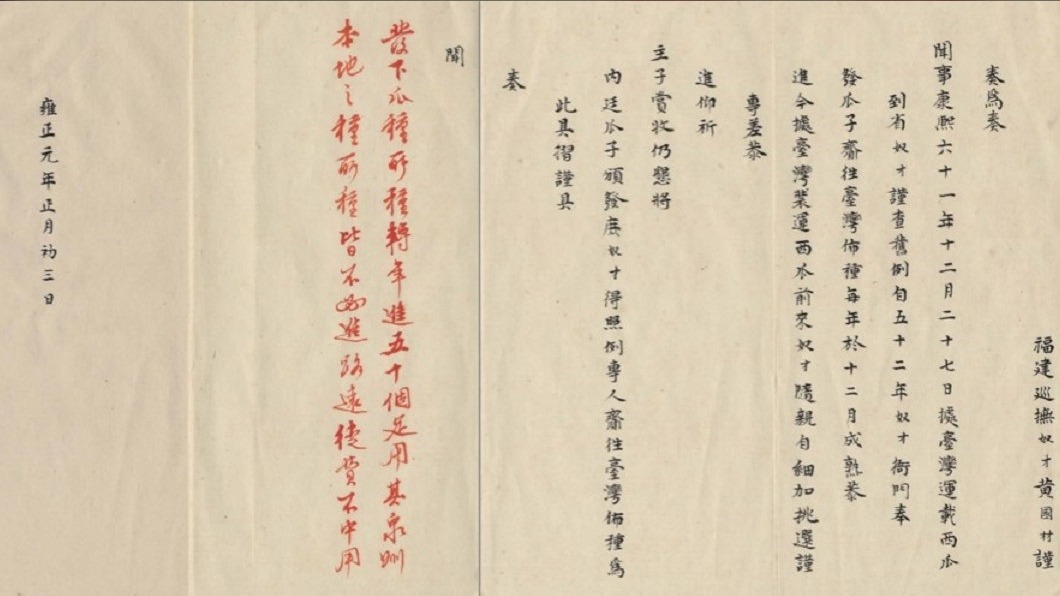 福建巡撫奴才黃國材謹
奏為奏
聞事康熙六十一年十二月二十七日據臺灣運載西瓜
到省奴才謹查舊例自五十二年奴才衙門奉
發瓜子齎往臺灣佈種每年於十二月成熟恭
進今據臺灣業運西瓜前來奴才隨親自細加挑選謹
專差恭
進仰祈
主子賞收仍懇將
內廷瓜子頒發庶奴才得照例專人齎往臺灣佈種為
此具摺謹具
奏
聞
發下瓜種所種轉年進五十個足用其泉州
本地之種所種皆不必進路遠徒費不中用
雍正元年正月初三日